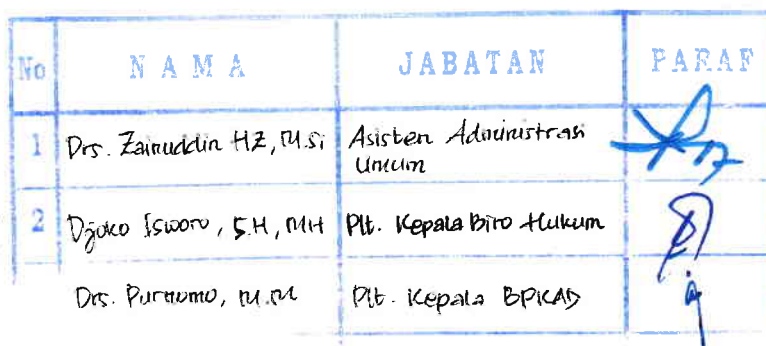 No NAMA JABATAN PARAF
1 Drs. Zainuddin HZ, M.Si Asisten Administrasi
Umum
2 Djoko Isworo, S.H, MH Plt. Kepala Biro Hukum
Drs. Purnomo, M.M Plt. Kepala BPKAD